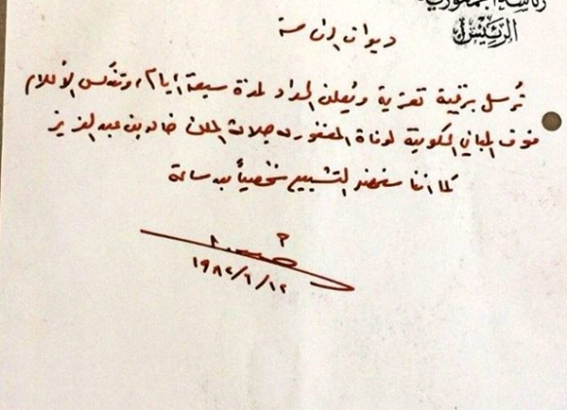 رئاسة الجمهورية
الرئيس
ديوان الرئاسة
تُرسل برقية تعزية ويُعلن الحداد لمدة سبعة أيام، وتنكس الأعلام
فوق المباني الحكومية لوفاة المغفور له جلالة الملك خالد بن عبد العزيز
كما أننا سنحضر التشييع شخصياً بعد ساعة
١٩٨٢/٦/١٢